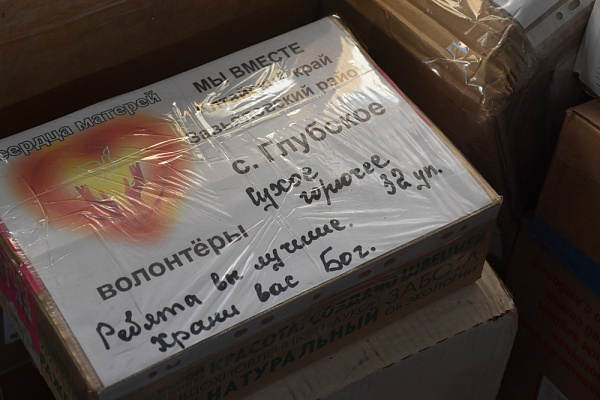 сердца матерей
МЫ ВМЕСТЕ
край
с. Глубокое
Сухое
горючее
32 уп.
ВОЛОНТЁРЫ
Ребята вы лучшие.
Храни вас Бог.
КРАСОТА.
ЗАБОТА
НАТУРАЛЬНЫЙ